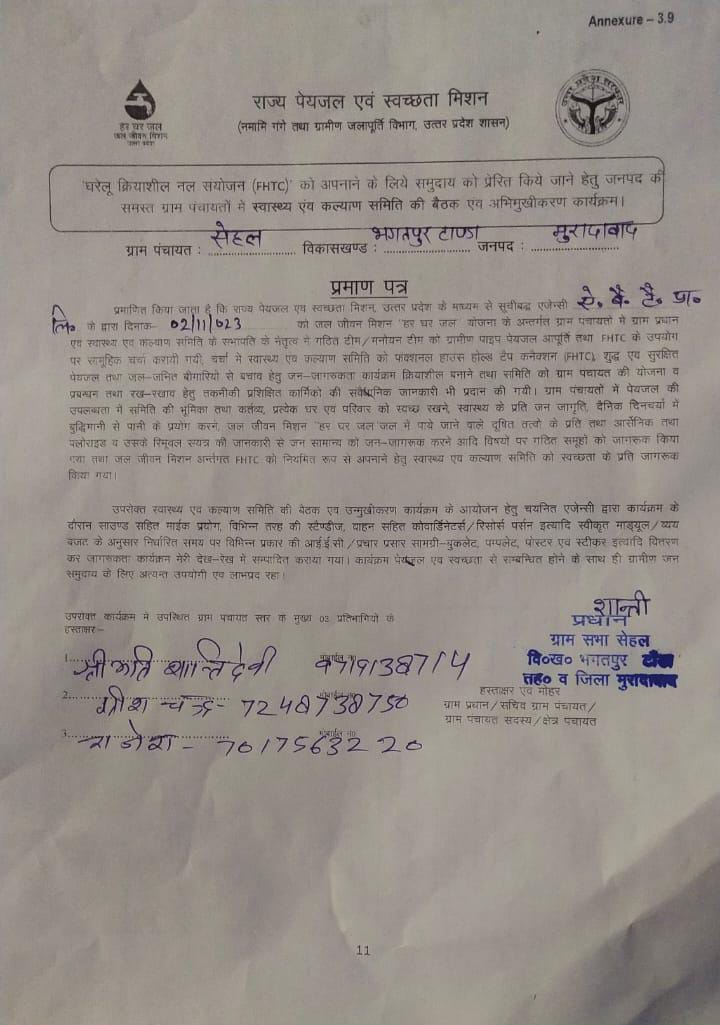 Annexure – 3.9
हर घर जल
जल जीवन मिशन
उत्तर प्रदेश
राज्य पेयजल एवं स्वच्छता मिशन
(नमामि गंगे तथा ग्रामीण जलापूर्ति विभाग, उत्तर प्रदेश शासन)
उत्तर प्रदेश सरकार
'घरेलू क्रियाशील नल संयोजन (FHTC)' को अपनाने के लिये समुदाय को प्रेरित किये जाने हेतु जनपद की
समस्त ग्राम पंचायतों में स्वास्थ्य एंव कल्याण समिति की बैठक एव अभिमुखीकरण कार्यक्रम।
ग्राम पंचायत : सेहल विकासखण्ड : भगतपुर टाण्डा जनपद : मुरादाबाद
प्रमाण पत्र
प्रमाणित किया जाता है कि राज्य पेयजल एव स्वच्छता मिशन, उत्तर प्रदेश के माध्यम से सूचीबद्ध एजेन्सी
लि० के द्वारा दिनाक- 02/11/023 को जल जीवन मिशन "हर घर जल" योजना के अन्तर्गत ग्राम पंचायतो में ग्राम प्रधान
एव स्वास्थ्य एव कल्याण समिति के सभापति के नेतृत्व में गठित टीम/मनोयन टीम को ग्रामीण पाइप पेयजल आपूर्ति तथा FHTC के उपयोग
पर सामूहिक चर्चा करायी गयी, चर्चा में स्वास्थ्य एव कल्याण समिति को फंक्शनल हाउस होल्ड टैप कनेक्शन (FHTC), शुद्ध एव सुरक्षित
पेयजल तथा जल-जनित बीमारियो से बचाव हेतु जन-जागरुकता कार्यक्रम क्रियाशील बनाने तथा समिति को ग्राम पंचायत की योजना व
प्रबन्धन तथा रख-रखाव हेतु तकनीकी प्रशिक्षित कार्मिको की संवैधनिक जानकारी भी प्रदान की गयी। ग्राम पंचायतों में पेयजल की
उपलब्धता में समिति की भूमिका तथा कर्तव्य, प्रत्येक घर एव परिवार को स्वच्छ रखने, स्वास्थ्य के प्रति जन जागृति, दैनिक दिनचर्या में
बुद्धिमानी से पानी के प्रयोग करने, जल जीवन मिशन "हर घर जल"जल में पाये जाने वाले दूषित तत्वो के प्रति तथा आर्सेनिक तथा
फ्लोराइड व उसके रिमूवल सयत्र की जानकारी से जन सामान्य को जन-जागरूक करने आदि विषयो पर गठित समूहों को जागरूक किया
गया तथा जल जीवन मिशन अर्न्तगत FHTC को नियमित रूप से अपनाने हेतु स्वास्थ्य एव कल्याण समिति को स्वच्छता के प्रति जागरूक
किया गया।
उपरोक्त स्वास्थ्य एव कल्याण समिति की बैठक एव उन्मुखीकरण कार्यक्रम के आयोजन हेतु चयनित एजेन्सी द्वारा कार्यक्रम के
दौरान साउण्ड सहित माईक प्रयोग, विभिन्न तरह की स्टैण्डीज, वाहन सहित कोवार्डिनेटर्स/रिसोर्स पर्सन इत्यादि स्वीकृत माड्यूल/व्यय
बजट के अनुसार निर्धारित समय पर विभिन्न प्रकार की आई.ई.सी/प्रचार प्रसार सामग्री-बुकलेट, पम्पलेट, पोस्टर एव स्टीकर इत्यादि वितरण
कर जागरुकता कार्यक्रम मेरी देख-रेख में सम्पादित कराया गया। कार्यक्रम पेयजल एव स्वच्छता से सम्बन्धित होने के साथ ही ग्रामीण जन
समुदाय के लिए अत्यन्त उपयोगी एव लाभप्रद रहा।
उपरोक्त कार्यक्रम मे उपस्थित ग्राम पचायत स्तर के मुख्य 03 प्रतिभागियो के
हस्ताक्षर–
शान्ती
प्रधान
ग्राम सभा सेहल
वि०ख० भगतपुर टांडा
तह० व जिला मुरादाबाद
1. श्रीमति शान्ति देवी मोबाईल न०
2. गिरीश चन्द्र- मोबाईल न० 7248738750
3. राजेश - मोबाईल न० 7017563220
हस्ताक्षर एव मोहर
ग्राम प्रधान/सचिव ग्राम पंचायत/
ग्राम पंचायत सदस्य/क्षेत्र पचायत
11